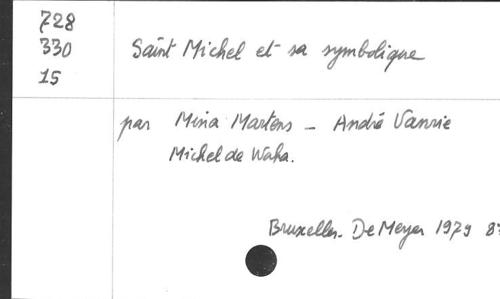 728
330 Saint Michel et sa symbolique
15
par Mina Martens - André Vanrie
Michel de Waha.
Bruxelles. De Meyer 1979